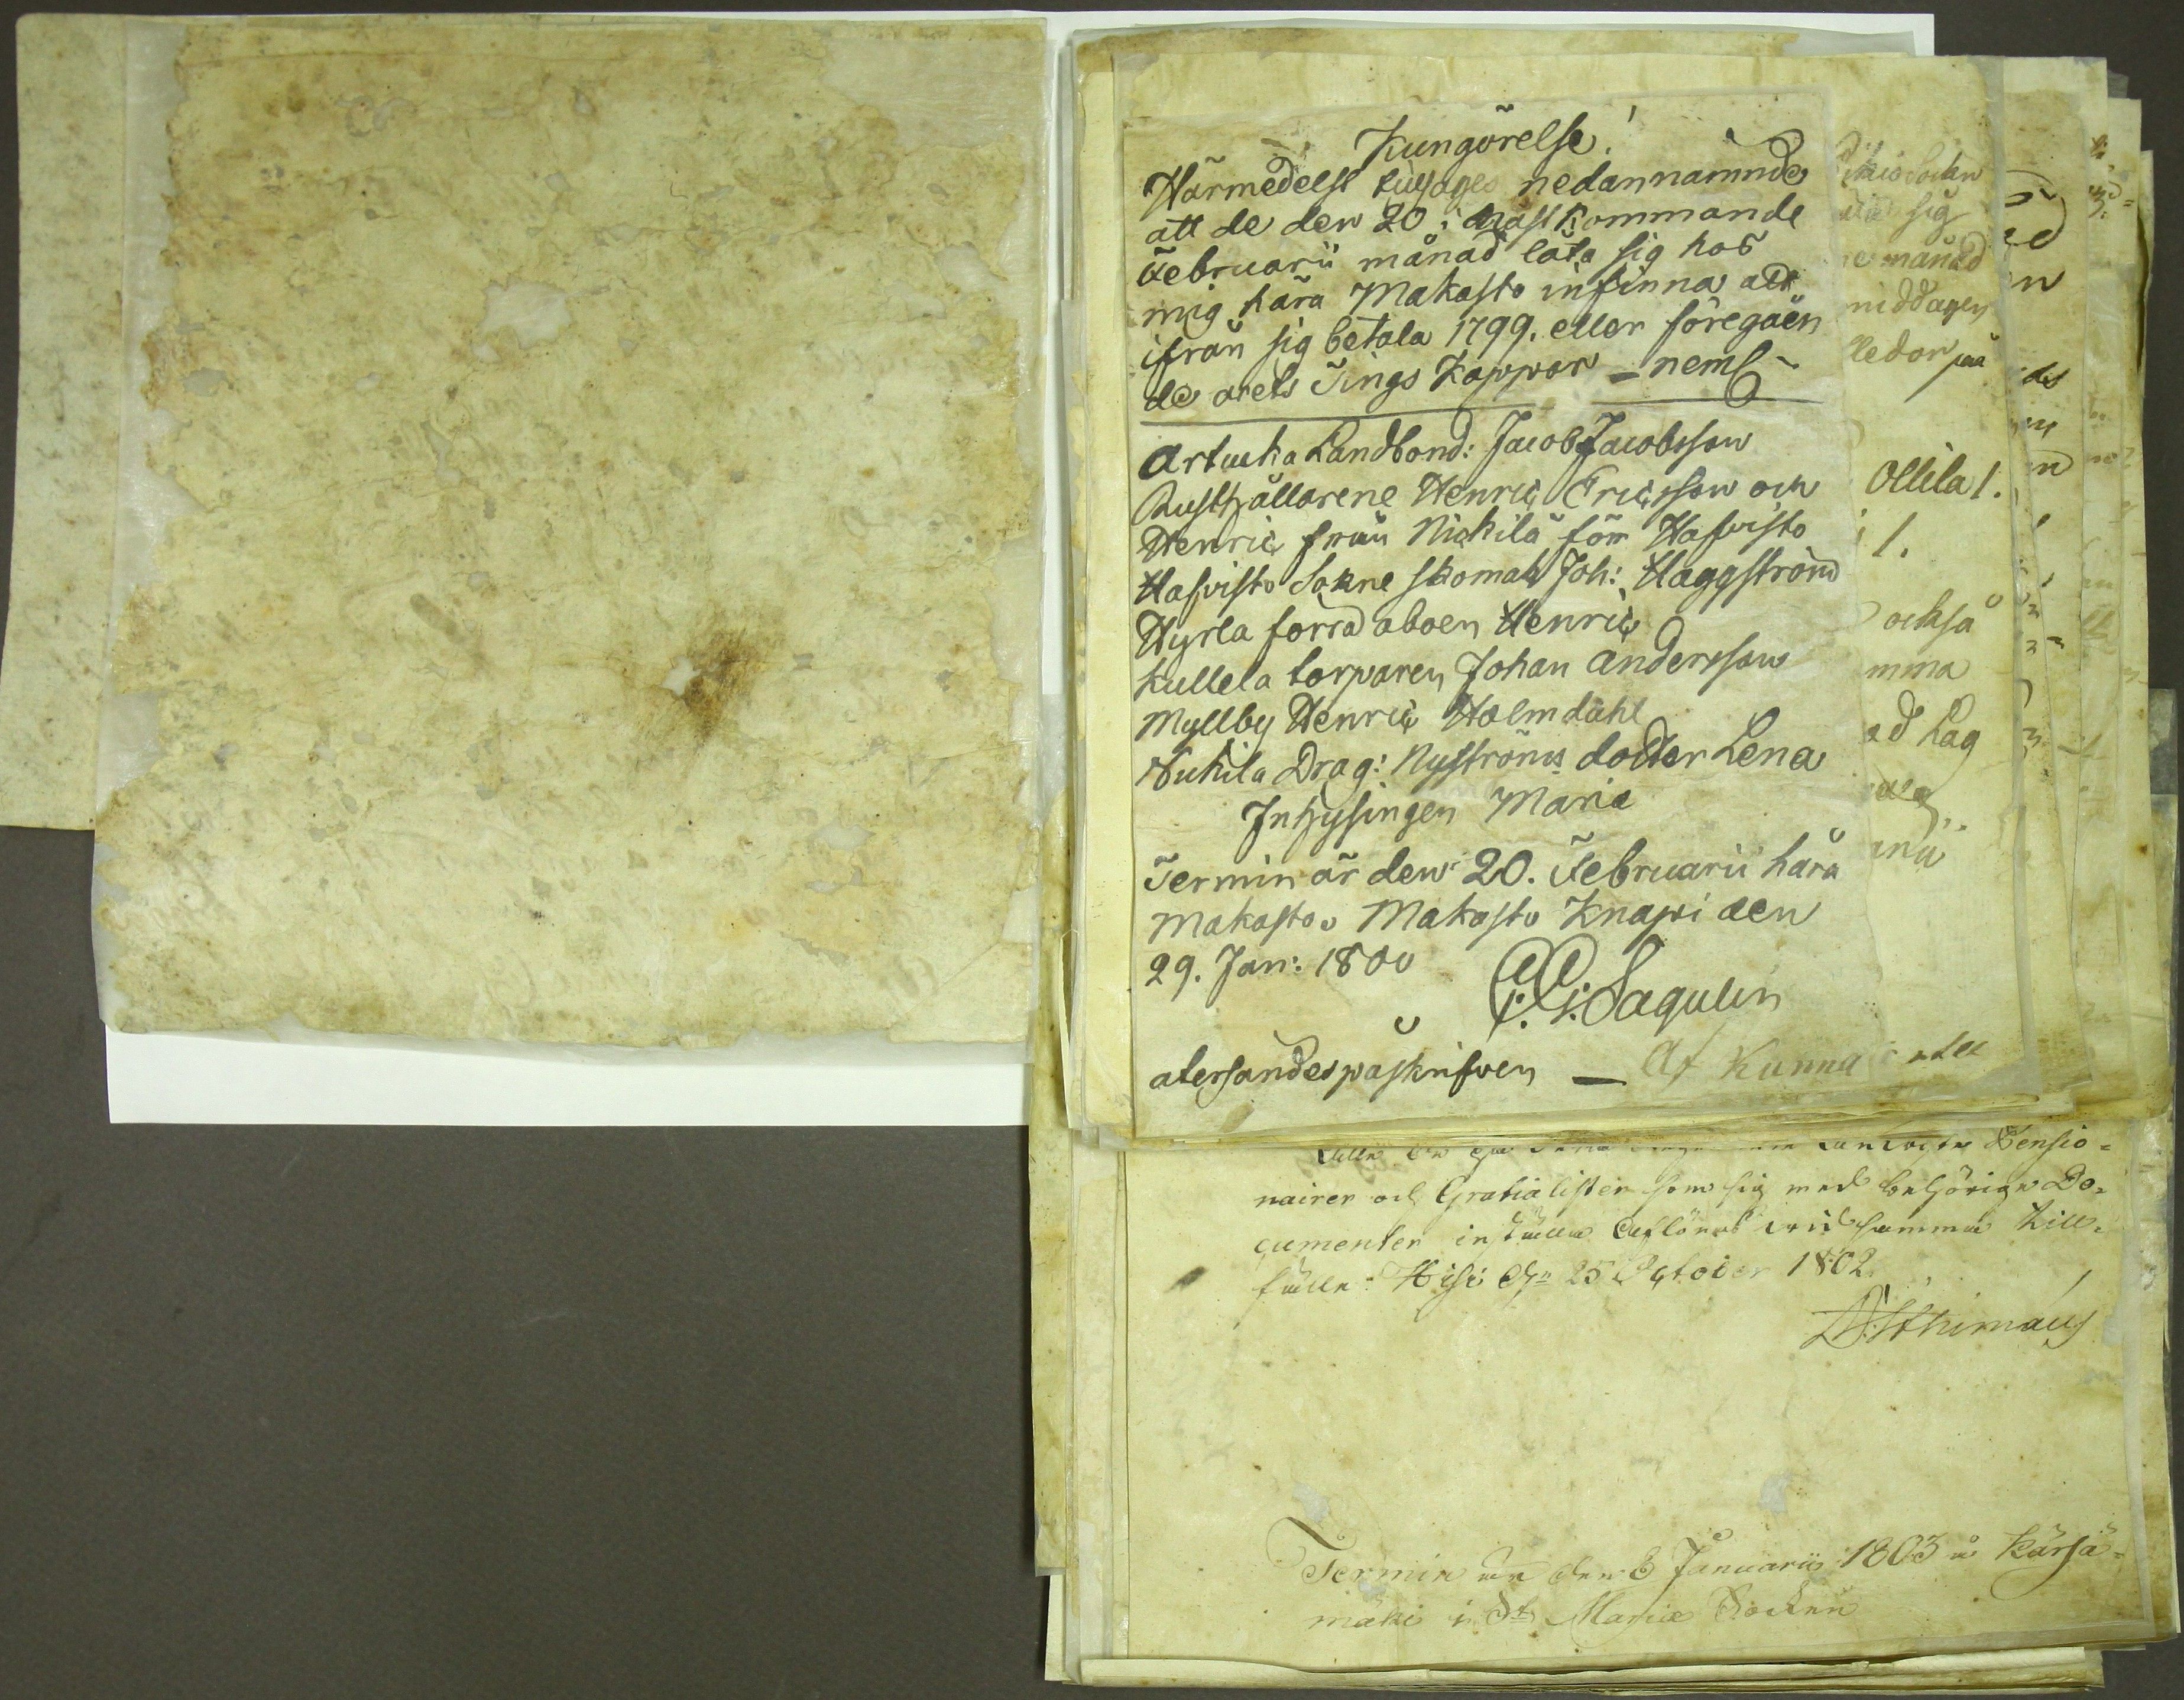 Kungörelse!
Härmedelst tillsäges nedannämnde
att de den 20: nästkommande
Februarii månad låta sig hos
mig hära Makasto infinna att
ifrån sig betala 1799. eller föregåen
de årets Tings Kappar – neml
Artucka Landbond: Jacob Jacobsson
Rusthållarene Henric Ericsson och
Henric från Nickilä förr Hafvisto
Hafvisto Sokne skomak Joh: Häggström
Hyrla förra åboen Henric
Kullela torparen Johan Andersson
Myllby Henric Holmdahl
Nukila Drag: Nyströms dotter Lena
Inhysingen Maria
Termin är den 20. Februarii hära
Makasto. Makasto Knapi den
29. Jan: 1800
Sagulin
återsändes påskrifven — Af Kunna
sig
månad
middagen
på
Ollila 1.
1.
också
mma
ed Lag
Pensio=
nairer och Gratialister som sig med behörige Do=
cumenter inställa aflönas vid samma till=
fälle. Hysi den 25 October 1802.
Termin är den 8 Januarii 1803 å Kärsä=
mäki i St Mariæ Socken